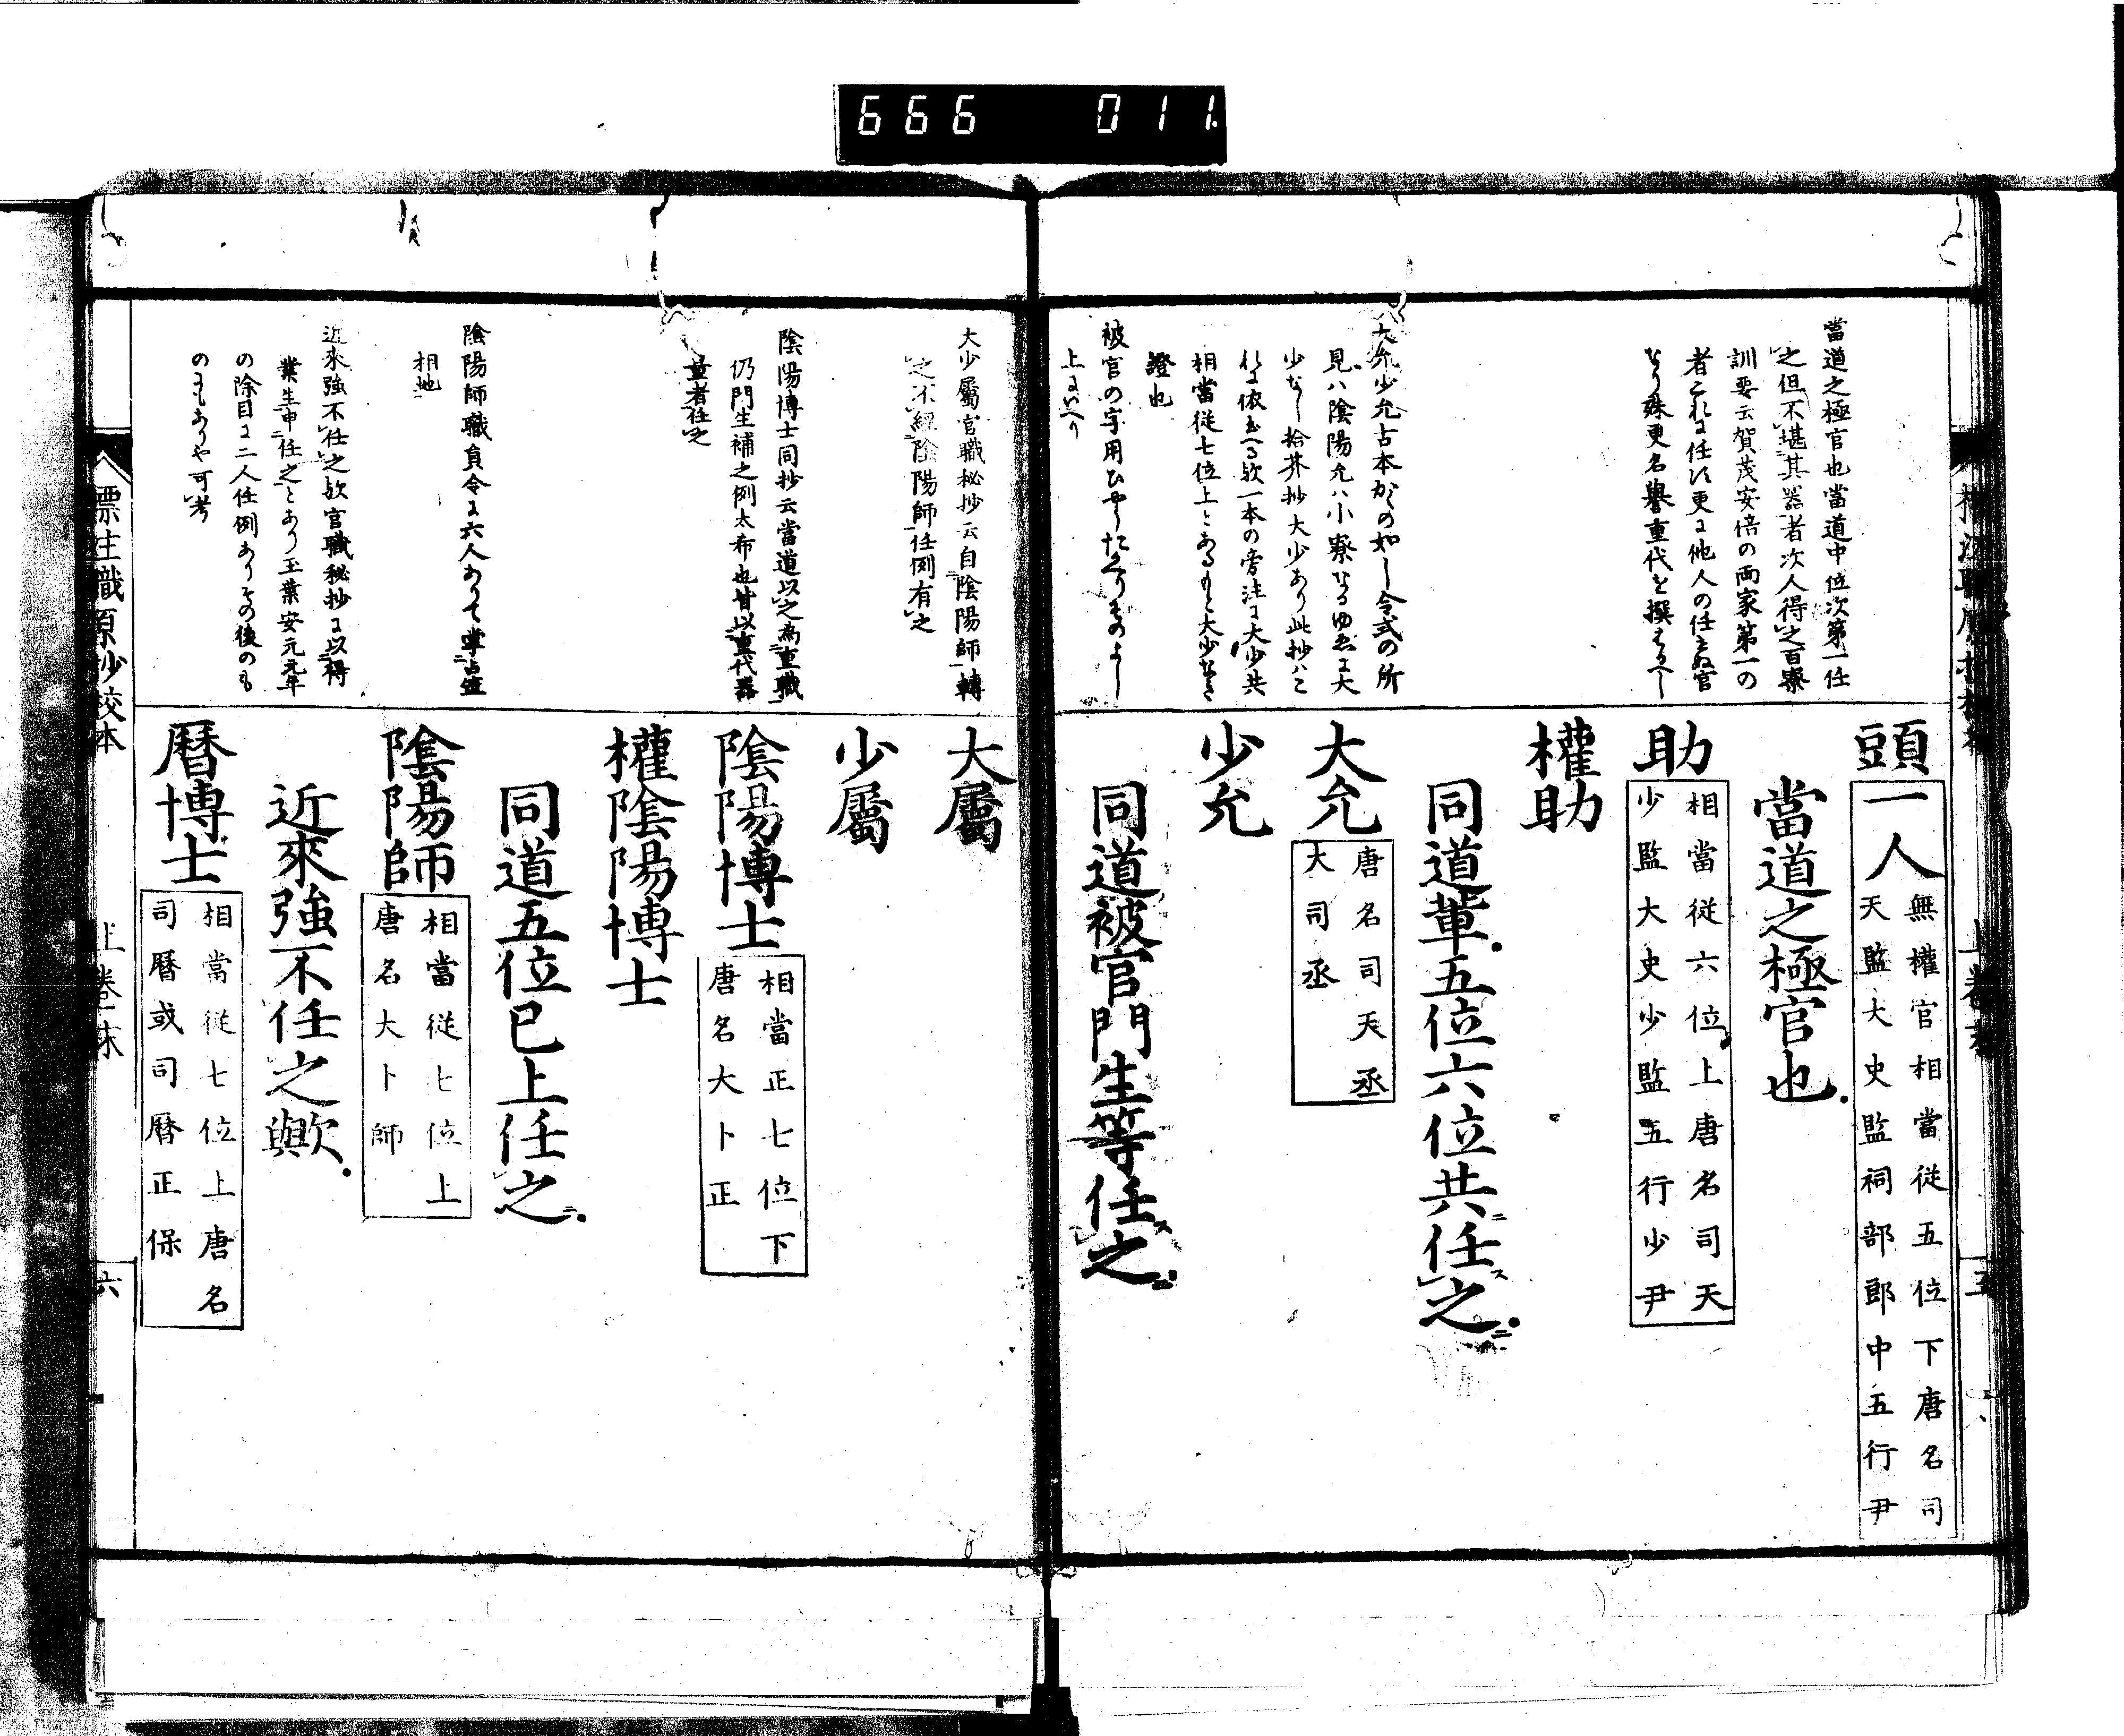 666 011
當道之極官也當道中位次第一任
之但不堪其器者次人得之百寮
訓要云賀茂安倍の両家第一の
者これに任ず更に他人の任ぜぬ官
なり殊更名譽重代を撰
大允少允古本かくの如し令式の所
見ハ陰陽允ハ小寮なるゆゑに大
少なし拾芥抄大少あり此抄ハこ
れに依玉へる歟一本の旁注に大少共
相當從七位上とある
證也
被官の字用ひ
上にいへり
頭一人
無權官相當從五位下唐名司
天監大史監祠部郎中五行尹
當道之極官也
助
相當從六位上唐名司天
少監大史少監五行少尹
權助
同道輩五位六位共任之
大允
唐名司天丞
大司丞
少允
同道被官門生等任之
大少屬官職秘抄云自陰陽師轉
之不經陰陽師任例有之
陰陽博士同抄云當道以之為重職
仍門生補之例太希也皆以重代器
量者任之
陰陽師職員令に六人ありて掌占筮
相地
近來強不任之歟官職秘抄に以得
業生申任之とあり玉葉安元元年
の除目に二人任例ありその後のも
のにもありや可考
大屬
少屬
陰陽博士
相當正七位下
唐名大卜正
權陰陽博士
同道五位已上任之
陰陽師
相當從七位上
唐名大卜師
近來強不任之歟
曆博士
相當從七位上唐名
司曆或司曆正保
標注職原抄校本 上卷末 六